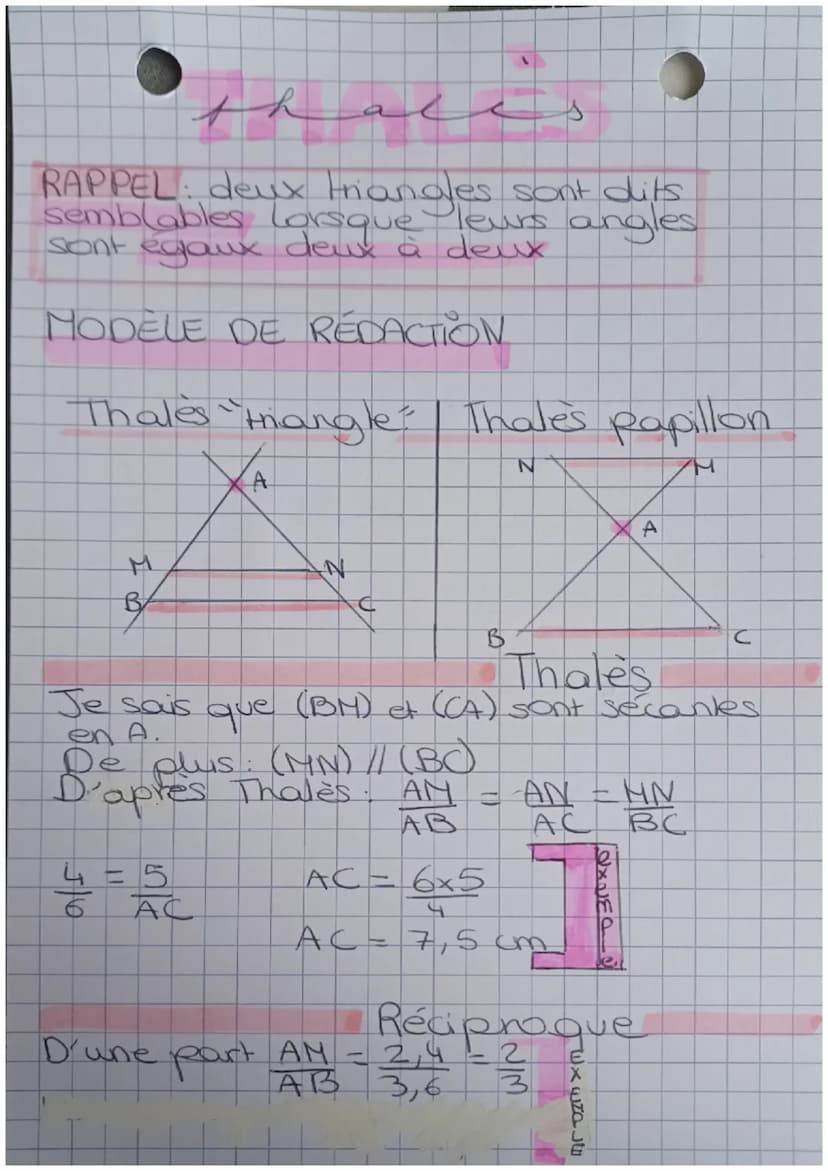 thalès
THALÈS
RAPPEL : deux triangles sont dits
semblables lorsque leurs angles
sont égaux deux à deux
MODÈLE DE RÉDACTION
Thalès "triangle"
Thalès papillon
A
M
N
B
C
N
M
A
B
C
Thalès
Je sais que (BM) et (CA) sont sécantes
en A.
De plus : (MN) // (BC)
D'après Thalès : AM/AB = AN/AC = MN/BC
4/6 = 5/AC
AC = 6x5/4
AC = 7,5 cm
exemple
Réciproque
D'une part AM/AB = 2,4/3,6 = 2/3
EXEMPLE